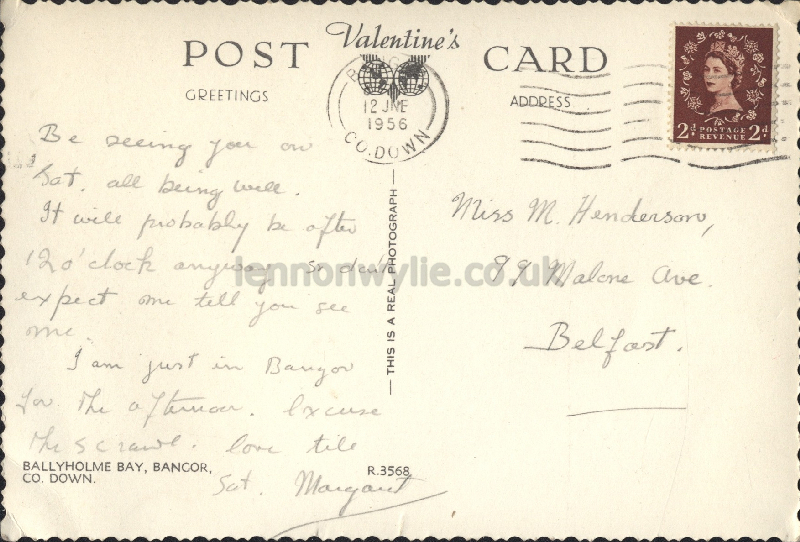 POST Valentine's CARD
GREETINGS
ADDRESS
12 JNE
1956
CO. DOWN
2d POSTAGE REVENUE 2d
Be seeing you on
Sat. all being well.
It will probably be after
12 o'clock anyway so dont
expect me tell you see
me.
I am just in Bangor
for the afternoon. Excuse
the scrawl. love till
Sat. Margaret
BALLYHOLME BAY, BANCOR,
CO. DOWN.
R.3568
THIS IS A REAL PHOTOGRAPH
Miss M. Henderson,
99 Malone Ave.
Belfast.
lennonwylie.co.uk